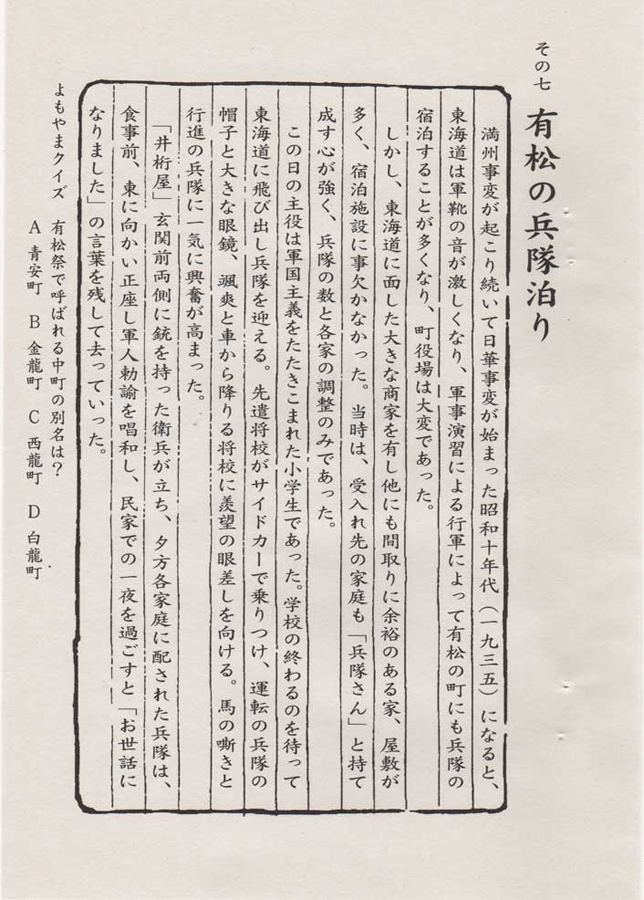 その七 有松の兵隊泊り
満州事変が起こり続いて日華事変が始まった昭和十年代(一九三五)になると、
東海道は軍靴の音が激しくなり、軍事演習による行軍によって有松の町にも兵隊の
宿泊することが多くなり、町役場は大変であった。
しかし、東海道に面した大きな商家を有し他にも間取りに余裕のある家、屋敷が
多く、宿泊施設に事欠かなかった。当時は、受入れ先の家庭も「兵隊さん」と持て
成す心が強く、兵隊の数と各家の調整のみであった。
この日の主役は軍国主義をたたきこまれた小学生であった。学校の終わるのを待って
東海道に飛び出し兵隊を迎える。先遣将校がサイドカーで乗りつけ、運転の兵隊の
帽子と大きな眼鏡、颯爽と車から降りる将校に羨望の眼差しを向ける。馬の嘶きと
行進の兵隊に一気に興奮が高まった。
「井桁屋」玄関前両側に銃を持った衛兵が立ち、夕方各家庭に配された兵隊は、
食事前、東に向かい正座し軍人勅諭を唱和し、民家での一夜を過ごすと「お世話に
なりました」の言葉を残して去っていった。
よもやまクイズ 有松祭で呼ばれる中町の別名は?
A 青安町 B 金龍町 C 西龍町 D 白龍町